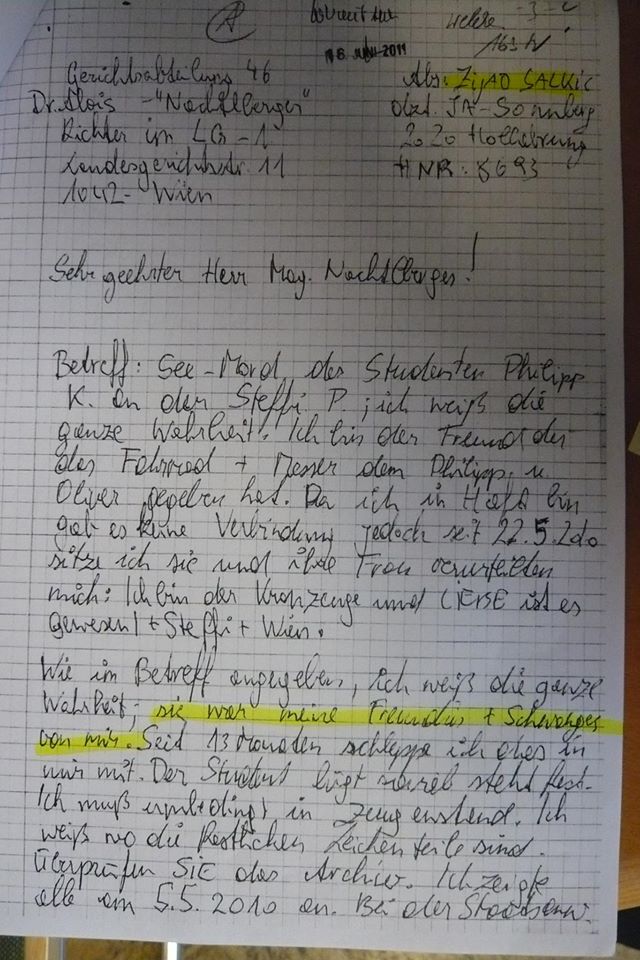 A
16. JUNI 2011
Gerichtsabteilung 46
Abs: Zijad SALKIC
Dr. Alois - "Nachtlberger"
dzt. JA - Sonnberg
Richter im LG - 1
2020 Hollabrunn
Landesgerichtsstr. 11
HNR: 8693
1042 - Wien
Sehr geehrter Herr Mag. Nachtlberger!
Betreff: See-Mord des Studenten Philipp
K. an der Steffi P. ; ich weiß die
ganze Wahrheit. Ich bin der Freund der
das Fahrrad + Messer dem Philipp u.
Oliver gegeben hat. Da ich in Haft bin
gab es keine Verbindung jedoch seit 22.5.2010
sitze ich sie und ihre Frau verurteilten
mich: Ich bin der Kronzeuge und LIEBE ist es
gewesen! + Steffi + Wien.
Wie im Betreff angegeben, ich weiß die ganze
Wahrheit; sie war meine Freundin + Schwanger
von mir. Seid 13 Monaten schleppe ich das in
mir mit. Der Student lügt soviel steht fest.
Ich muß unbedingt in Zeugenstand. Ich
weiß wo die Restlichen Leichenteile sind.
Überprüfen SIE das Archiv. Ich zeigte
alle am 5.5.2010 an. Bei der Staatsanw.